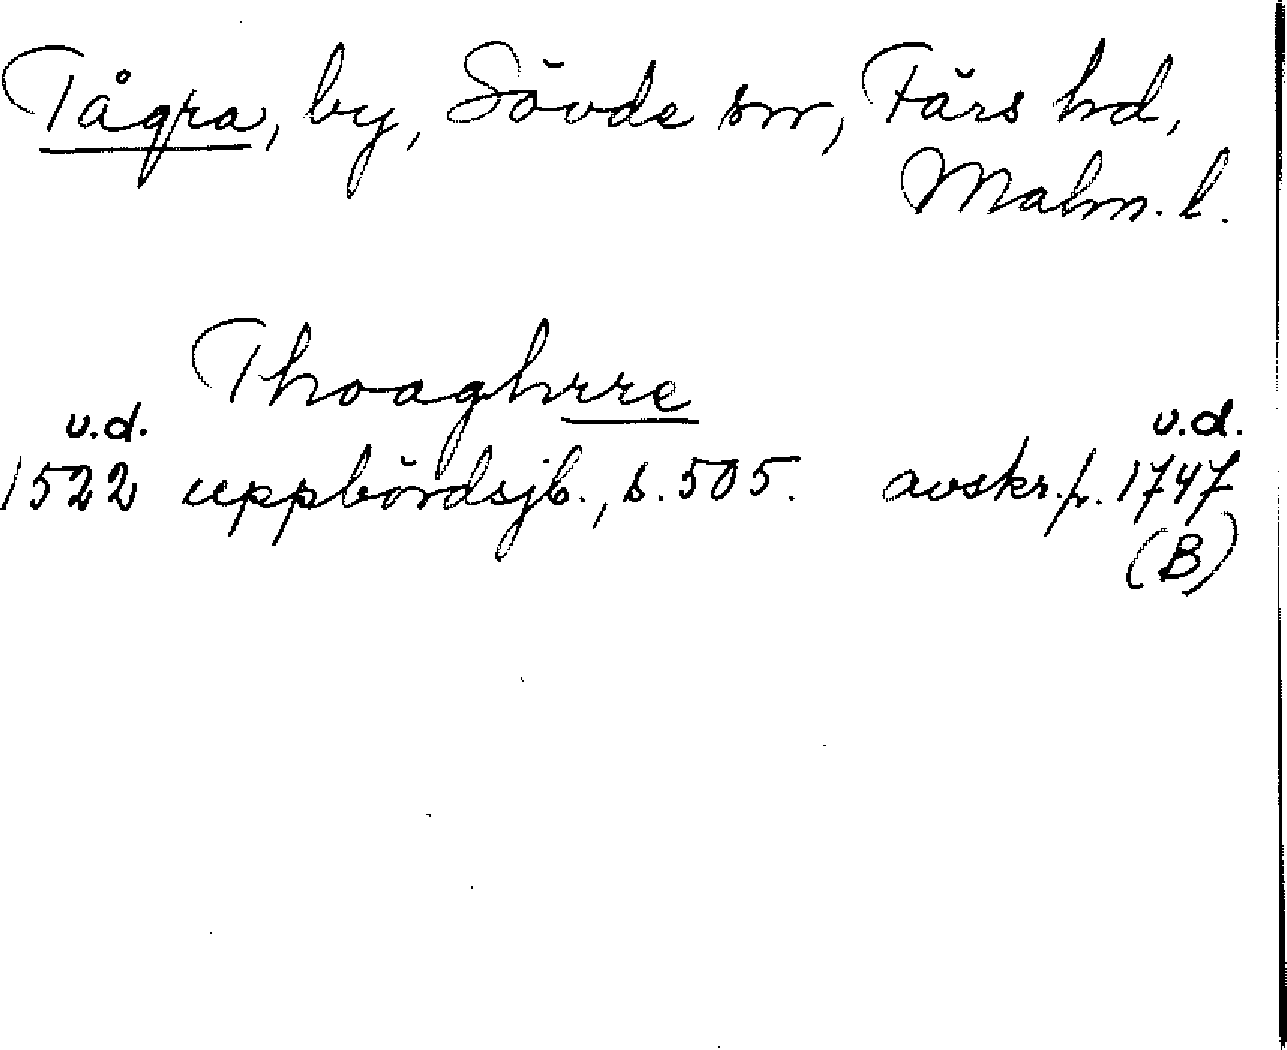 Tågra, by, Sövde sn, Färs hd,
Malm. l.
Thoaghrre
u.d. u.d.
1522 uppbördsjb., s. 505. avskr. fr. 1747
(B)